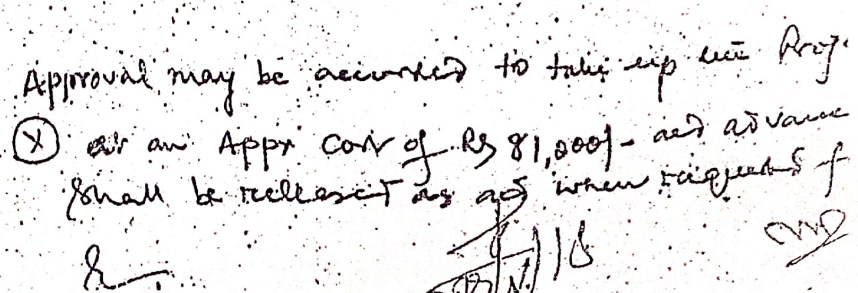 Approval may be accorded to take up the Proj.
(X) at an Appr Cost of Rs 81,000/- and advance
Shall be released as and when requested f